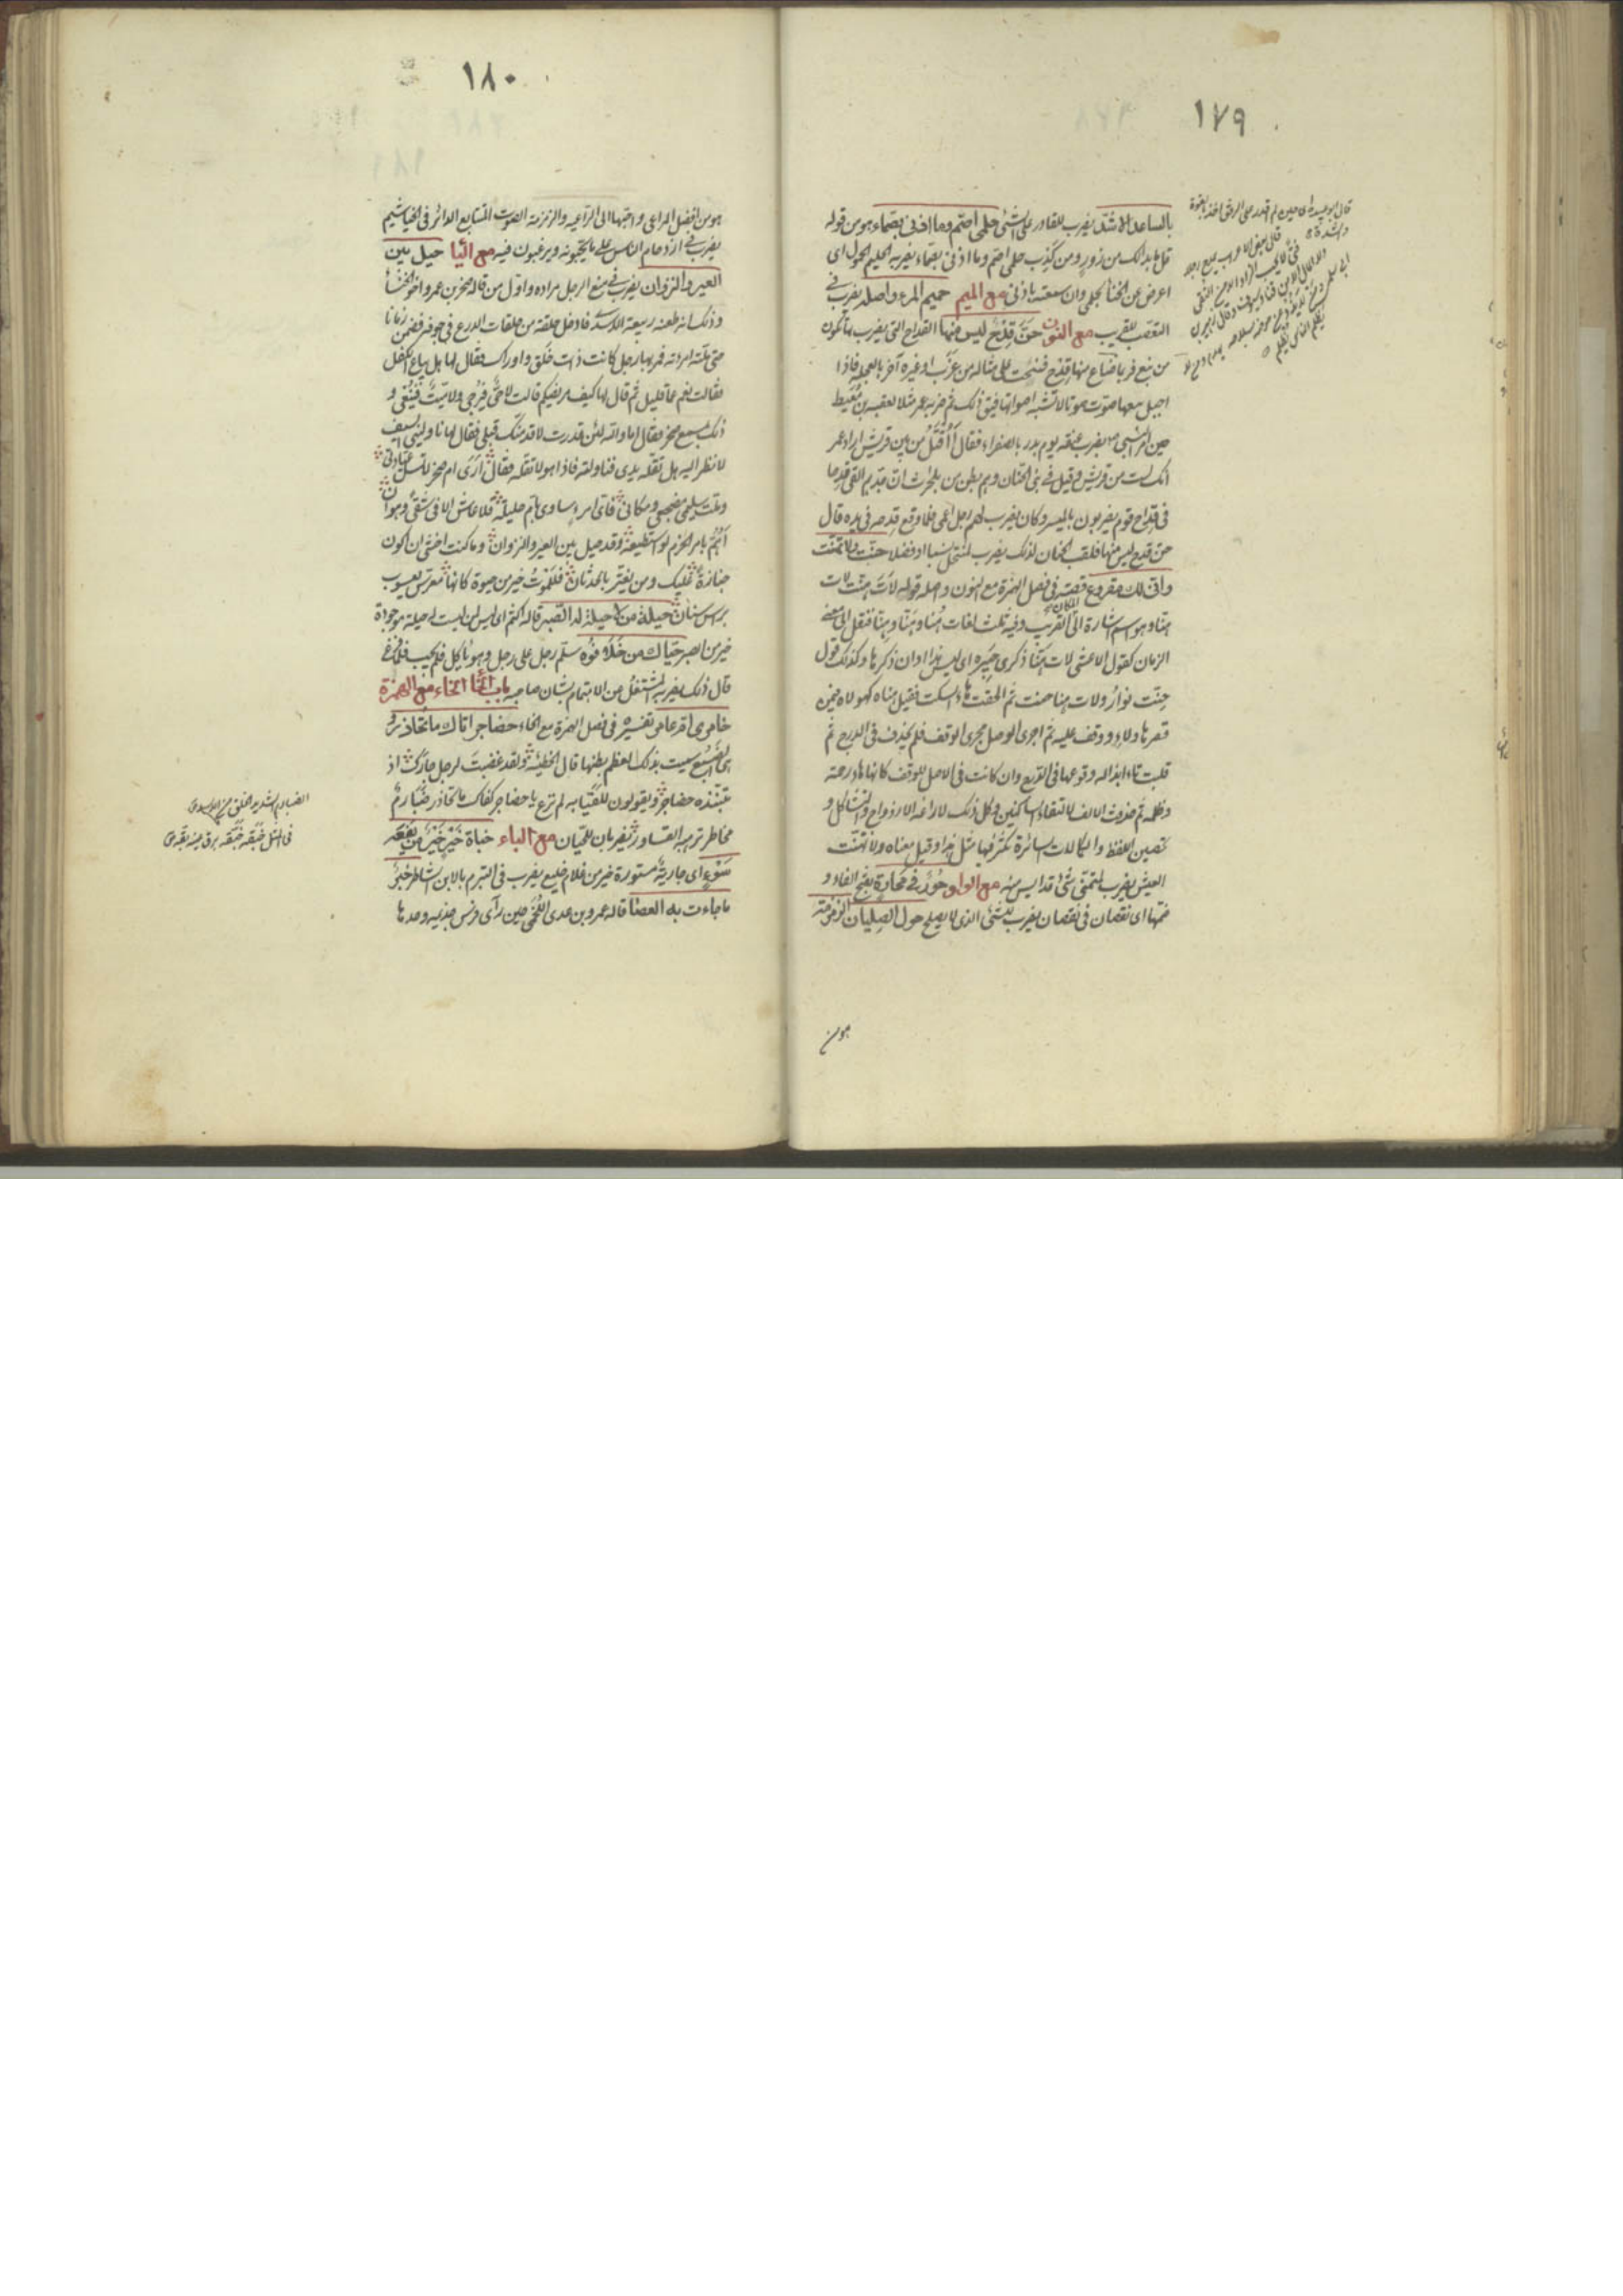 ١٧٩
بالساعد الاشد يضرب للقادر على الشئ حلمى اصم وما اذنى بصماء هو من قوله
قل ما بدا لك من زور ومن كذب حلمى اصم وما اذنى بصماء يضربه الحليم الحمول اى
اعرض عن الخنا بحلمى وان سمعته باذنى مع الميم حميم المرء واصله يضرب فى
التعصب للقريب مع النون حنّ قدح ليس منها القداح التى يضرب بها تكون
من نبع فربما ضاع منها قدح فنحت على مثاله من غرب او غيره آخر بالعجلة فاذا
اجيل معها صوّت صوتا لا تشبه اصواتها فيق ذلك ثم ضربه عمر مثلا لعقبة بن معيط
حين امر النبى بضرب عنقه يوم بدر بالصفراء فقال أأقتل من بين قريش اراد عمر
انك لست من قريش وقيل فى بنى الحنان وهم بطن من بلحارث ان جدهم القى قدحا
فى قداح قوم يضربون بالميسر وكان يضرب لهم رجل اعمى فلما وقع قدحه فى يده قال
حنّ قدح ليس منها فلقب الحنان لذلك يضرب لمنتحل نسبا او فضلا حنت ولا تهنت
وانى لك مقروع قصته فى فصل الهمزة مع النون واصله قوله لات هنت لات
هنا وهو اسم اشارة الى المكان القريب وفيه ثلث لغات هُنا وهَنّا وهِنّا فنقل الى معنى
الزمان كقول الاعشى لات هنّا ذكرى جبيرة اى ليس هذا اوان ذكرها وكذلك قول
حنت نوار ولات هنا حنت ثم الحقت هاء السكت فقيل هناه كهولاه فيمن
قصرها ولاء ووقف عليه ثم اجرى الوصل مجرى الوقف فلم يحذف فى الدرج ثم
قلبت تاء ابداله وقوعها فى الدرج وان كانت فى الاصل للوقف كانها هاء رحمة
وظلمة ثم حذفت الالف لالتقاء الساكنين وكل ذلك لاراغة الازدواج والتشاكل و
تحصين اللفظ والكلمات السائرة تكثر فيها مثل هذا وقيل معناه ولا تهنت
العيش يضرب لمتمنى شئ قد ايس منه مع الواو حور فى محارة بفتح الفاء و
ضمها اى نقصان فى نقصان يضرب للشئ الذى لا يصلح حول الصليان الزمزمة
هو من
١٨٠
هو من افضل المراعى واحبها الى الراعية والزمزمة الصوت المتتابع الدائر فى الخياشيم
يضرب فى ازدحام الناس على ما يحبونه ويرغبون فيه مع اليا حيل بين
العير والنزوان يضرب فى منع الرجل مراده واول من قاله صخر بن عمرو اخو الخنساء
وذلك انه طعنه ربيعة الاسدى فادخل حلقة من حلقات الدرع فى جوفه فضمن زمانا
حتى ملته امرأته فمر بها رجل كانت ذات خلق واوراك فقال لها هل يباع الكفل
فقالت نعم عما قليل ثم قال لها كيف مريضكم قالت لا حى فيرجى ولا ميت فينعى و
ذلك بسمع صخر فقال اما والله لئن قدرت لاقدمنك قبلى فقال لها ناولينى السيف
لانظر اليه هل تقله يدى فناولته فاذا هو لا تقله فقال ارى ام صخر لا تمل عيادتى
وملت سليمى مضجعى ومكانى فاى امرء ساوى بام حليلة فلا عاش الا فى شقى وهوان
اهم بامر الحزم لو استطيعه وقد حيل بين العير والنزوان وما كنت اخشى ان اكون
جنازة عليك ومن يغتر بالحدثان فللموت خير من حيوة كانها معرس يعسوب
براس سنان حيلة من لا حيلة له الصبر قاله اكثم اى ليس لمن ليست له حيلة موجودة
خير من الصبر حياك من خلا فوه سلم رجل على رجل وهو ياكل فلم يجب فلما فرغ
قال ذلك يضربه المشتغل من الاهتمام بشان صاحبه باب الخا الخاء مع الهمزة
خامرى ام عامر تفسيره فى فصل الهمزة مع الخاء حضاجر اتاك ما تحاذر
اى الضبع سميت بذلك لعظم بطنها قال الحطيئة ولقد غضبت لرحل جارك اذ
تنبذه حضاجر ويقولون للفتيا به لم ترع يا حضاجر كفاك ما تحاذر ضبارم
مخاطر ترهبه القساور يضربان للجبان مع الباء خباة خير خير من يفعة
سوء اى جارية مستورة خير من غلام خليع يضرب فى التبرم بالابن الشاطر خير
ما جاءت به العصا قاله عمرو بن عدى اللخمى حين رأى فرس جذيمة وحدها